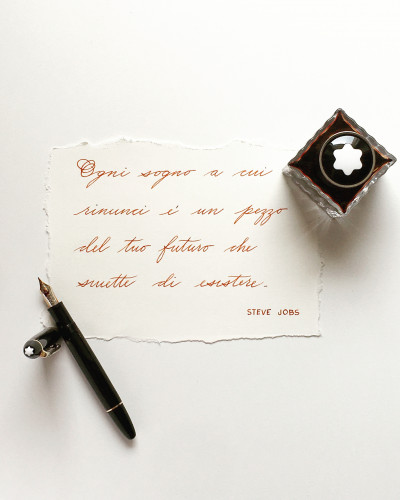 Ogni sogno a cui
rinunci é un pezzo
del tuo futuro che
smette di esistere.
STEVE JOBS